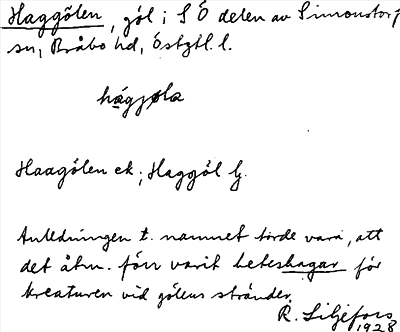 Haggölen, göl i S Ö delen av Simonstorps
sn, Bråbo hd, Östgtl. l.
hágjøla
Haagölen ek; Haggöl Gj.
Anledningen t. namnet torde vara, att
det åtm. förr varit beteshagar för
kreaturen vid gölens stränder.
R. Liljefors
1928